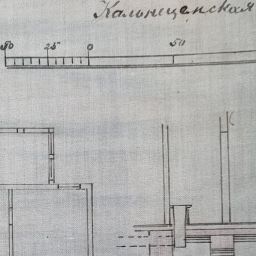 Кальницепская
50 25 0 50